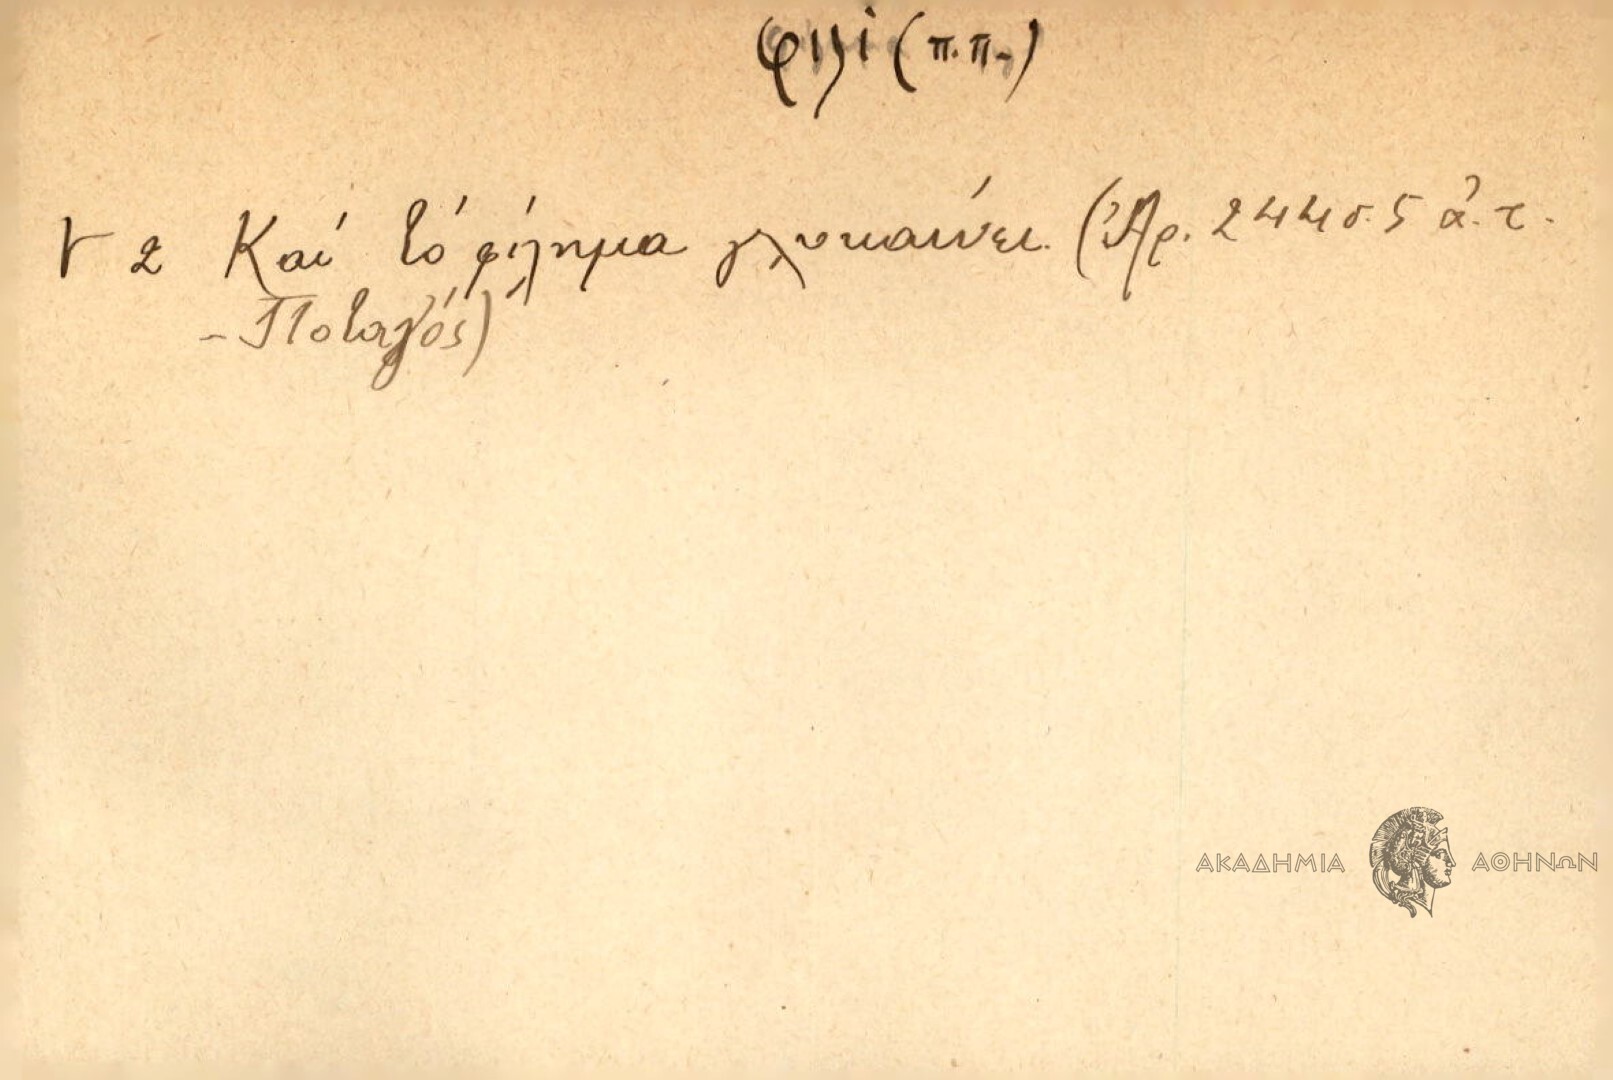 φιλί (π.π.)
γ 2 Καί τό φίλημα γλυκαίνει. (Ἀρ. 244 σ. 5 ἀ. τ.
- Ποταγός)
ΑΚΑΔΗΜΙΑ ΑΘΗΝΩΝ